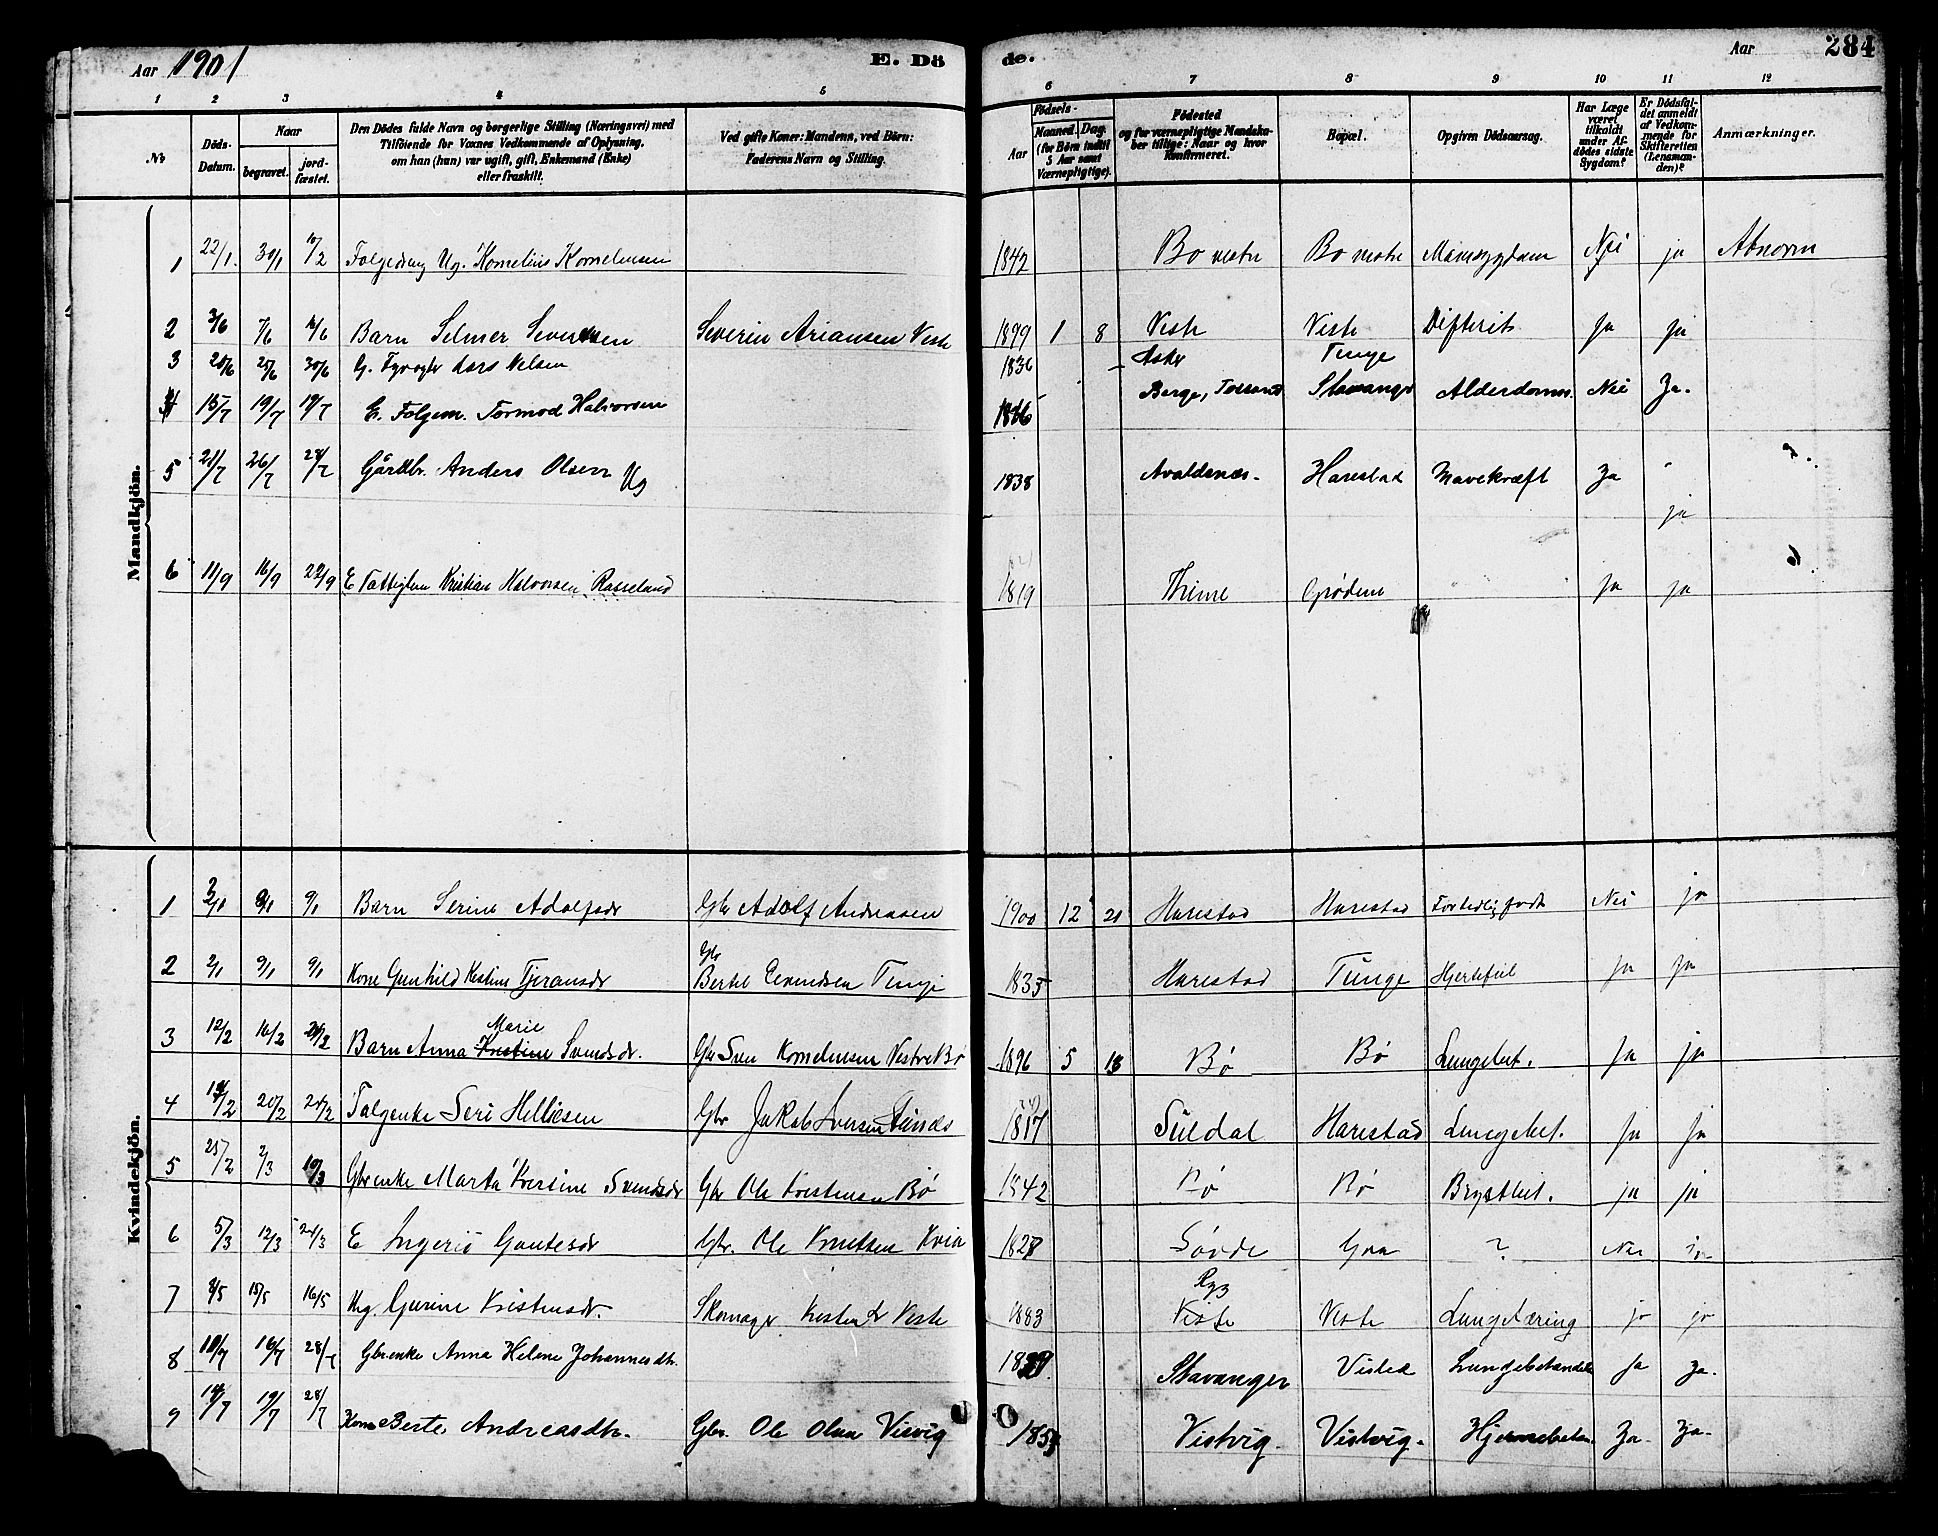 Aar 1901
E. Dö
de.
Aar
284
1 2 3 4 5 6 7 8 9 10 11 12
No
Döds-Datum.
Naar
begravet.
jord-fæstet.
Den Dödes fulde Navn og borgerlige Stilling (Næringsvei) med
Tilföiende for Voxnes Vedkommende af Oplysning,
om han (hun) var ugift, gift, Enkemand (Enke)
eller fraskilt.
Ved gifte Koner: Mandens, ved Börn:
Faderens Navn og Stilling.
Födsels-
Aar
Maaned. Dag.
(for Börn indtil
5 Aar samt
Værnepligtige).
Födested
og for værnepligtige Mandska-
ber tillige: Naar og hvor
konfirmeret.
Bopæl.
Opgiven Dödsaarsag.
Har Læge
været
tilkaldt
under Af-
dödes sidste
Sygdom?
Er Dödsfal-
det anmeldt
af Vedkom-
mende for
Skifteretten
(Lensman-
den)?
Anmærkninger.
Mandkjön.
1 22/1 30/1 10/2 Ug. Kornelius Kornelius­sen 1842 Bo vestre Bo vestre Nei ja Abnorm
2 3/6 7/6 Barn Selmer Severinsen Severin Ariansen Viste 1899 1 8 Viste Viste Difterit ja ja
3 20/6 25/6 30/6 G. Lars Nelsen 1836 Tunge
4 15/7 19/7 19/7 E. Folgem. Tormod Halvorsen 1816 Berge, Stavanger Alderdoms. Nei Ja.
5 21/7 26/7 28/7 Gårdbr. Anders Olsen Ug 1838 Avaldsnæs. Harestad Mavekræft Ja
ja
6 11/9 16/9 22/9 E Kristian Halvorsen Rasseland 1819 Thime Grødem " ja ja
Kvindekjön.
1 2/1 9/1 9/1 Barn Serine Adolfsdr Gbr Adolf Andreasen 1900 12 21 Harestad Harestad For tidlig født Nei ja
2 2/1 9/1 9/1 Kone Gunhild Kristine Tjeransdr Gbr Bertel Eivindsen Tunge 1835 Harestad Tunge Hjertefeil ja ja
Marie
3 12/2 16/2 Barn Anna Kristine Svendsdr. Gbr Sven Korneliussen Vestre Bø 1896 5 Bø Bø Lungebet. ja ja
4 20/2 24/2 Folgenke Seri Helliesen Gbr Jakob Iversen 1817 Suldal Harestad Lungebet. ja ja
5 25/2 2/3 10/3 Gbrenke Marta Kristine Svendsdr Gbr Ole Kristensen Bø 1842 Bø Bø Brystbet. ja ja
6 5/3 12/3 24/3 E Ingerid Gautesdr Gbr. Ole Knutsen Kvia 1828 Søvde ? Nei ja
Ryg
7 8/5 15/5 16/5 Ug. Gurine Kristensdr. Skomager Viste 1883 Viste Viste Lungetæring ja ja
8 10/7 16/7 28/7 Gbrenke Anna Helene Johannesdtr. Stavanger Lungebetændelse ja Ja.
9 14/7 19/7 28/7 Kone Berte Andreasdtr. Gbr. Ole Olsen Visvig 1853 Vistvig. Vistvig. Hjernebetæn. Ja. Ja.